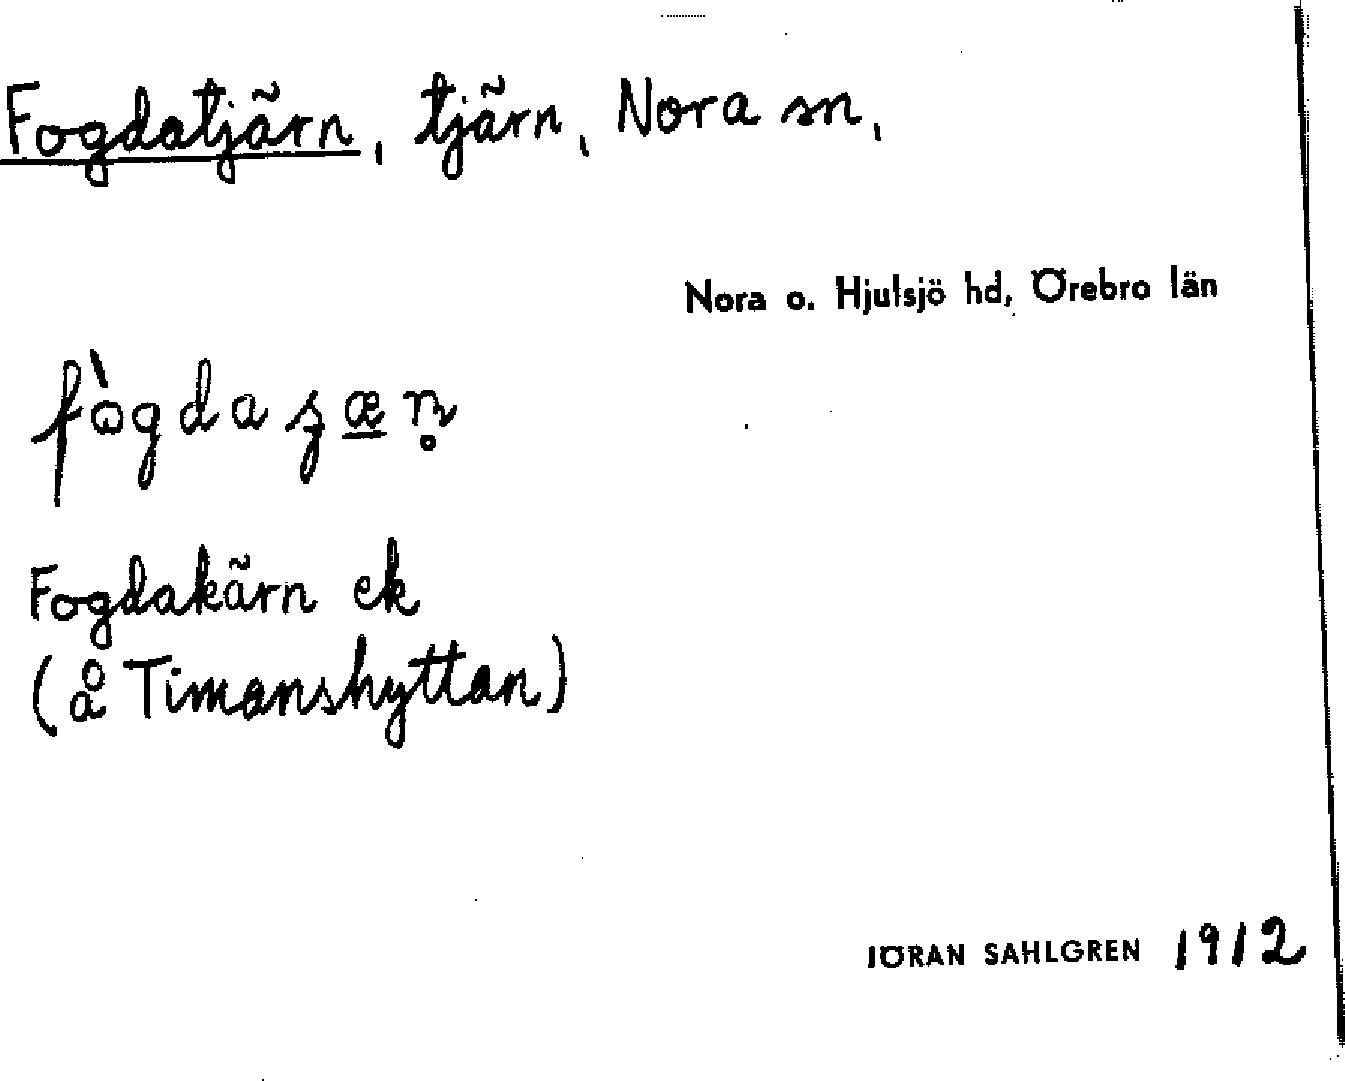 Fogdatjärn, tjärn, Nora sn,
Nora o. Hjulsjö hd, Örebro län
Fogdakärn ek
(å Timanshyttan)
JÖRAN SAHLGREN 1912